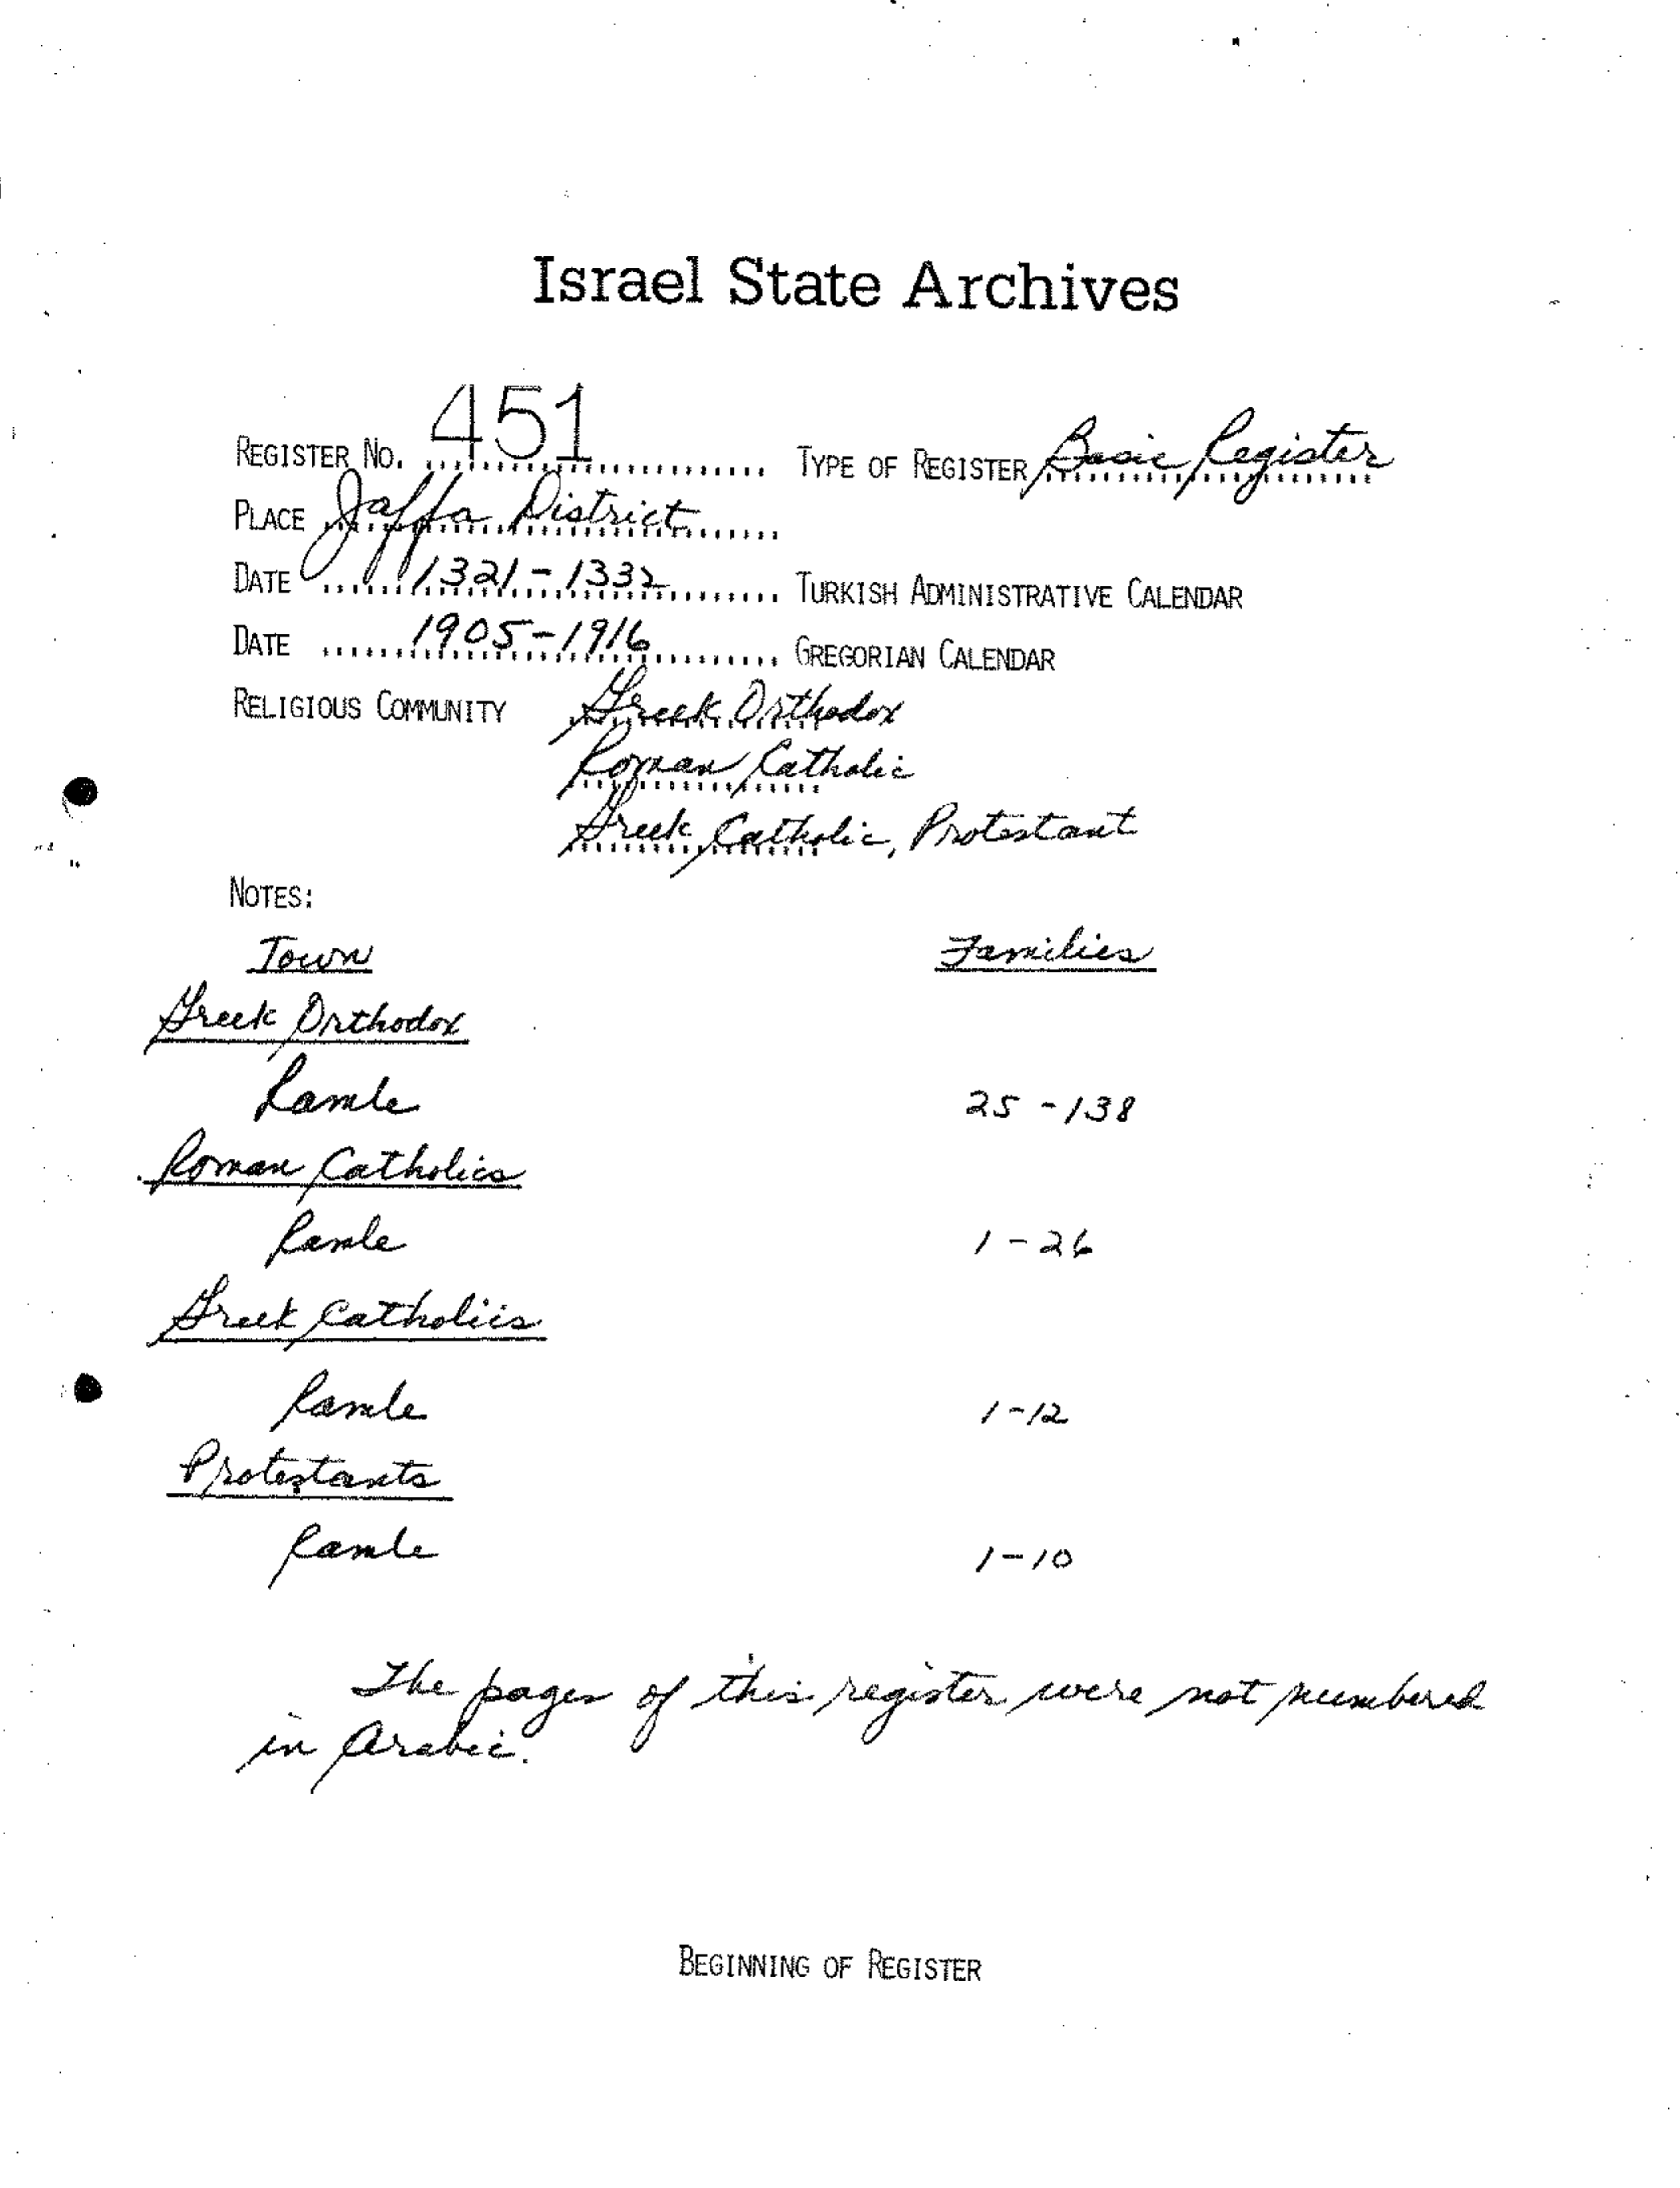 Israel State Archives
REGISTER NO. 451 TYPE OF REGISTER Basic Register
PLACE Jaffa District
DATE 1321-1332 TURKISH ADMINISTRATIVE CALENDAR
DATE 1905-1916 GREGORIAN CALENDAR
RELIGIOUS COMMUNITY Greek Orthodox
Roman Catholic
Greek Catholic, Protestant
NOTES:
Town Families
Greek Orthodox
Ramle 25-138
Roman Catholics
Ramle 1-26
Greek Catholics
Ramle 1-12
Protestants
Ramle 1-10
The pages of this register were not numbered
in Arabic.
BEGINNING OF REGISTER